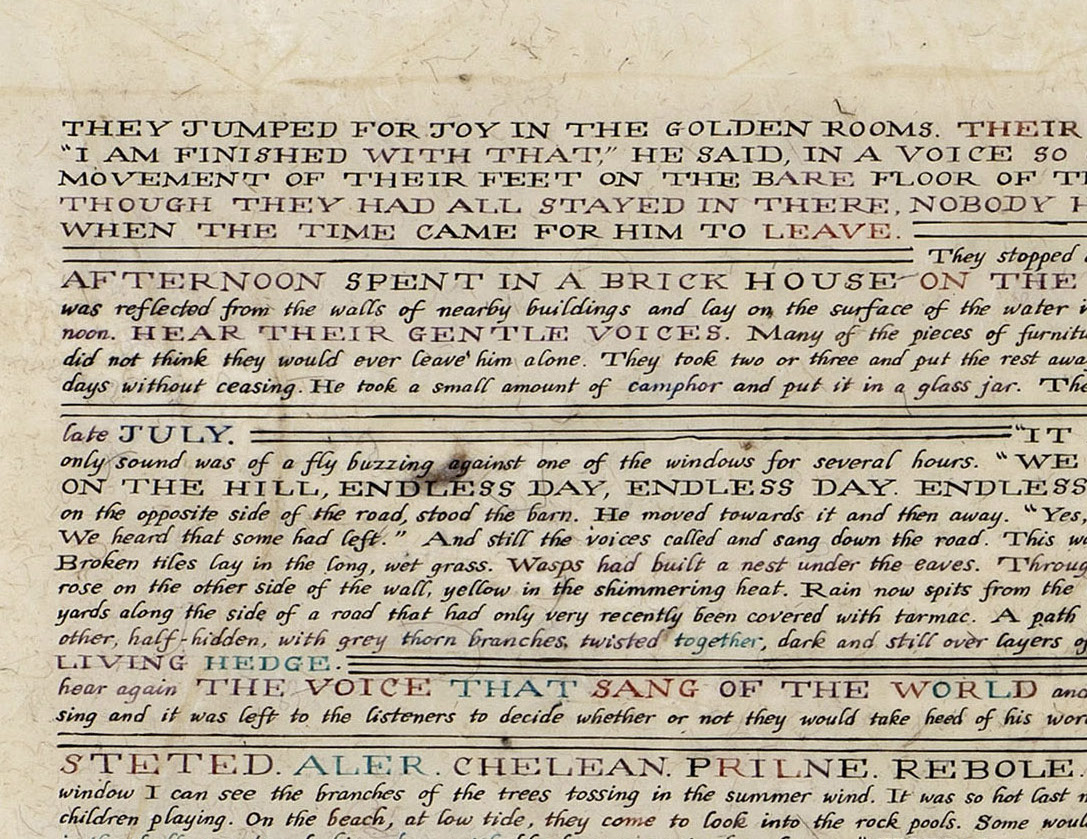 THEY JUMPED FOR JOY IN THE GOLDEN ROOMS. THEIR
"I AM FINISHED WITH THAT," HE SAID, IN A VOICE SO
MOVEMENT OF THEIR FEET ON THE BARE FLOOR OF
THOUGH THEY HAD ALL STAYED IN THERE, NOBODY
WHEN THE TIME CAME FOR HIM TO LEAVE.
They stopped
AFTERNOON SPENT IN A BRICK HOUSE ON THE
was reflected from the walls of nearby buildings and lay on the surface of the water
noon. HEAR THEIR GENTLE VOICES. Many of the pieces of
did not think they would ever leave him alone. They took two or three and put the rest
days without ceasing. He took a small amount of camphor and put it in a glass jar.
late JULY. "IT
only sound was of a fly buzzing against one of the windows for several hours. "WE
ON THE HILL, ENDLESS DAY, ENDLESS DAY. ENDLESS
on the opposite side of the road, stood the barn. He moved towards it and then away. "Yes,
We heard that some had left." And still the voices called and sang down the road. This
Broken tiles lay in the long, wet grass. Wasps had built a nest under the eaves.
rose on the other side of the wall, yellow in the shimmering heat. Rain now spits from the
yards along the side of a road that had only very recently been covered with tarmac. A path
other, half-hidden, with grey thorn branches, twisted together, dark and still over layers
LIVING HEDGE.
hear again THE VOICE THAT SANG OF THE WORLD and
sing and it was left to the listeners to decide whether or not they would take heed of his
STETED. ALER. CHELEAN. PRILNE. REBOLE.
window I can see the branches of the trees tossing in the summer wind. It was so hot last
children playing. On the beach, at low tide, they come to look into the rock pools. Some